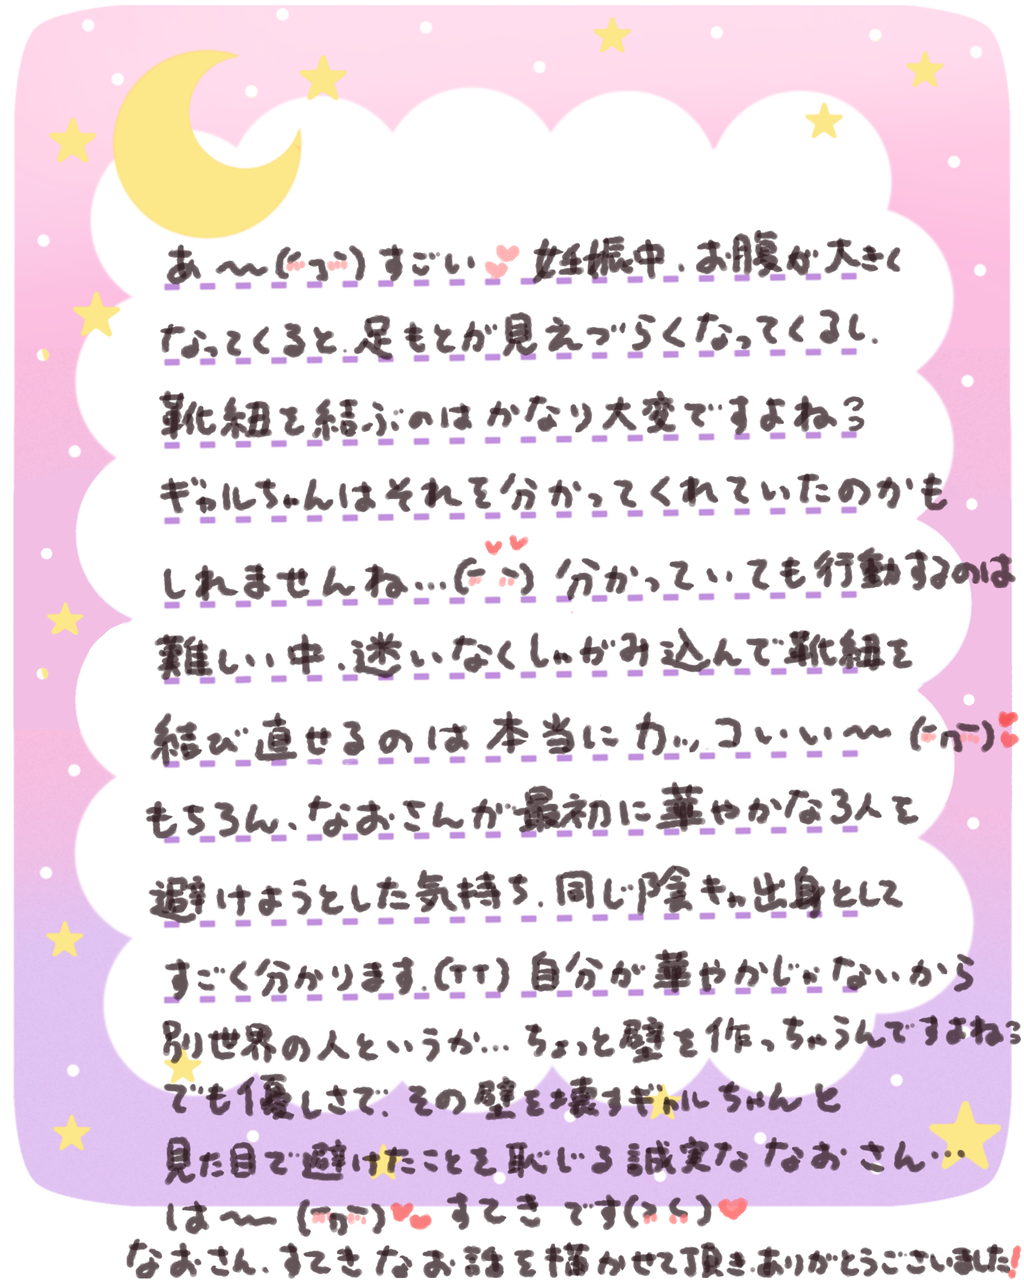 あ〜(´つ`)すごい 妊娠中、お腹が大きく
なってくると、足もとが見えづらくなってくるし、
靴紐を結ぶのはかなり大変ですよね💦
ギャルちゃんはそれを分かってくれていたのかも
しれませんね…(´`) 分かっていても行動するのは
難しい中、迷いなくしゃがみ込んで靴紐を
結び直せるのは本当にカッコいい〜
もちろん、なおさんが最初に華やかな3人を
避けようとした気持ち、同じ陰キャ出身として
すごく分かります。(TT) 自分が華やかじゃないから
別世界の人というか…ちょっと壁を作っちゃうんですよねろ
でも優しさで、その壁を壊すギャルちゃんと
見た目で避けたことを恥じる誠実ななおさん…
は〜 すてきです
なおさん、すてきなお話を描かせて頂き、ありがとうございました!